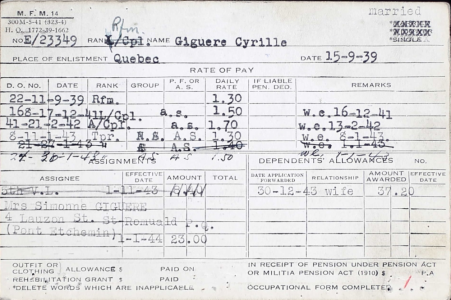 M. F. M. 14
Married
Rfm.
NO E/23349 RANK L/Cpl. NAME Giguere Cyrille SINGLE
PLACE OF ENLISTMENT Quebec DATE 15-9-39
RATE OF PAY
D. O. NO. DATE RANK GROUP P. F. OR A. S. DAILY RATE IF LIABLE PEN. DED. REMARKS
22-11-9-39 Rfm. 1.30
168-17-12-41 L/Cpl. a.s. 1.50 w.e. 16-12-41
41-21-2-42 A/Cpl. a.s. 1.70 w.e. 13-2-42
8-11-1-43 Tpr. A.S. 1.30 w.e. 8-1-43
A.S. 1.50
ASSIGNMENTS DEPENDENTS' ALLOWANCES NO.
ASSIGNEE EFFECTIVE DATE AMOUNT TOTAL DATE APPLICATION FORWARDED RELATIONSHIP EFFECTIVE DATE AMOUNT AWARDED
V.L. 1-11-43 30-12-43 wife 37.20
Mrs Simonne GIGUERE
4 Lauzon St. St-Romuald P.Q.
(Pont Etchemin)
1-1-44 23.00
OUTFIT OR CLOTHING ALLOWANCE $ PAID ON IN RECEIPT OF PENSION UNDER PENSION ACT
OR MILITIA PENSION ACT (1910) $
REHABILITATION GRANT $ PAID ON
*DELETE WORDS WHICH ARE INAPPLICABLE OCCUPATIONAL FORM COMPLETED